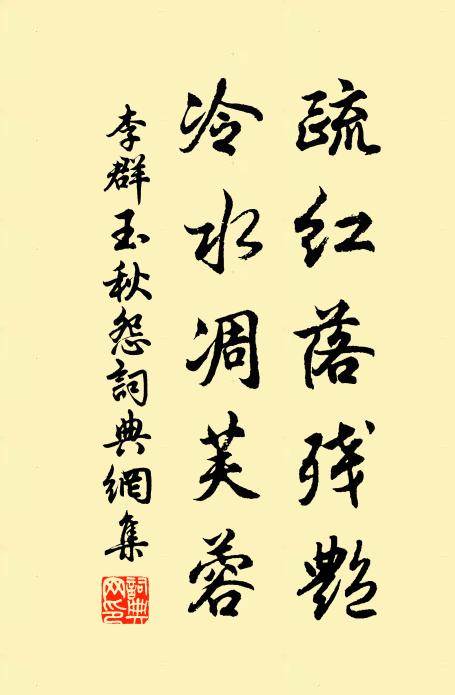 疏红落残艷
冷水凋芙蓉
李群玉秋怨詞典網集
詞典網印